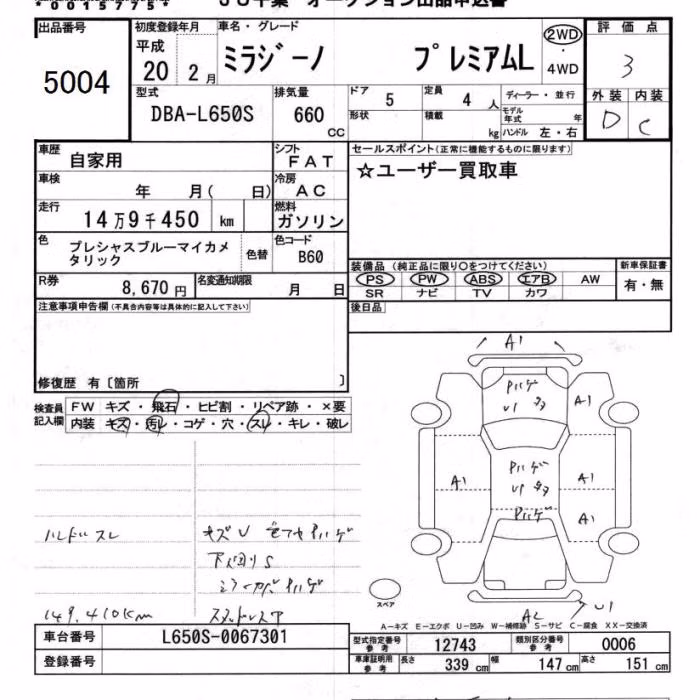 *00157775*
JU千葉 オークション出品申込書
出品番号
5004
初度登録年月
平成
20 2月
車名・グレード
ミラジーノ プレミアムL
2WD
・
4WD
評価点
3
外装 内装
D C
型式
DBA-L650S
排気量
660
CC
ドア
5
定員
4 人
形状
積載
kg
ディーラー・並行
モデル年式 年
ハンドル 左・右
車歴
自家用
シフト
FAT
車検
年 月( 日)
冷房
AC
走行
14万9千450 km
燃料
ガソリン
色
プレシャスブルーマイカメタリック
色替
色コード
B60
R券
8,670円
名変通知期限
月 日
セールスポイント(正常に機能するものに限ります)
☆ユーザー買取車
装備品 (純正品に限り○をつけてください)
PS PW ABS エアB AW
SR ナビ TV カワ
新車保証書
有・無
後日品
注意事項申告欄(不具合内容等は具体的に記入して下さい)
修復歴 有〔箇所 〕
検査員
記入欄
FW キズ・飛石・ヒビ割・リペア跡・×要
内装 キズ・汚レ・コゲ・穴・スレ・キレ・破レ
ハンドルスレ
キズU
下廻りS
149,410km
A1
A1
A1
A1
A1
A2
U1
スペア
A-キズ E-エクボ U-凹み W-補修跡 S-サビ C-腐食 XX-交換済
車台番号 L650S-0067301
登録番号
型式指定番号
参考
12743
類別区分番号
参考
0006
車庫証明用
参考
長さ 339 cm 幅 147 cm 高さ 151 cm